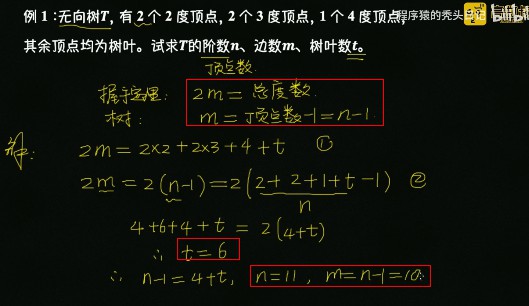 例1:无向树T,有2个2度顶点,2个3度顶点,1个4度顶点,
程序猿的秃头日记
其余顶点均为树叶。试求T的阶数n、边数m、树叶数t。
顶点数
握手定理: 2m=总度数
树: m=顶点数-1=n-1
解: 2m=2×2+2×3+4+t ①
2m=2(n-1)=2(2+2+1+t-1) ②
n
4+6+4+t=2(4+t)
∴ t=6
∴ n-1=4+t, n=11, m=n-1=10.